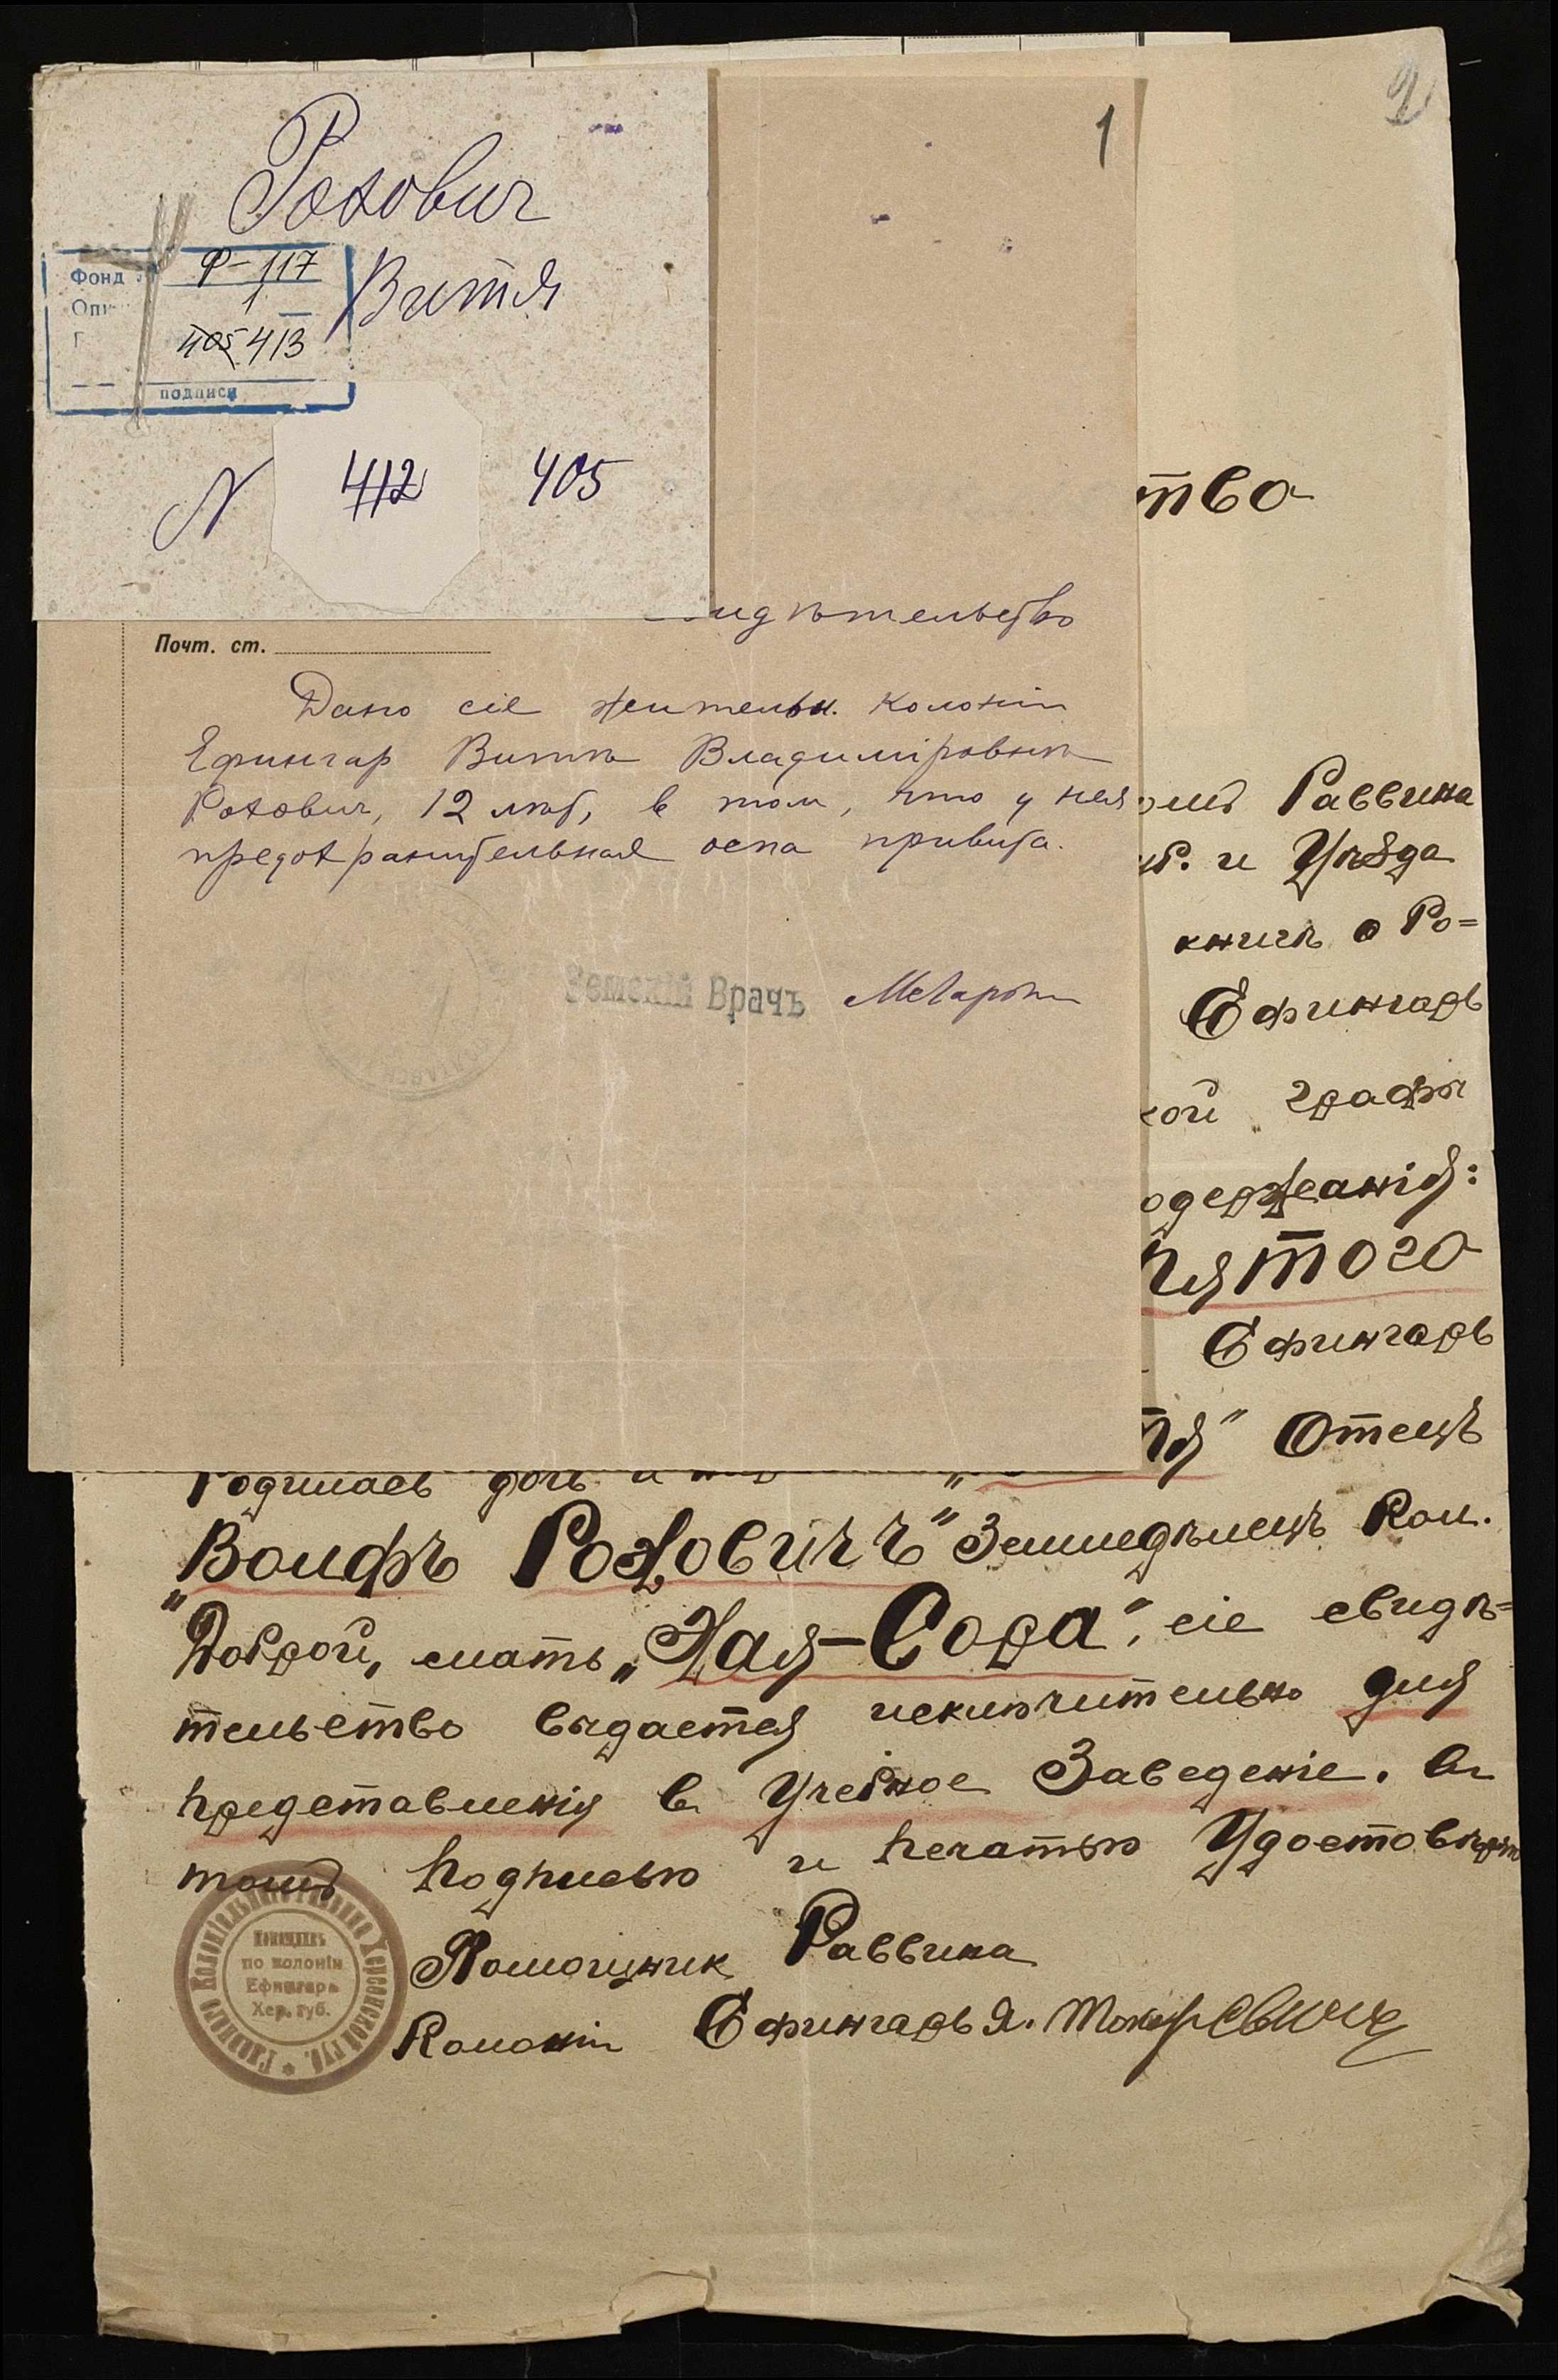 Рохович
Витя
Фонд Ф-117
1
405 413
подписи
N 412 405
1
2
тво
идѣтельство
Почт. ст.
Дано сіе жительн. колоніи
Ефингар Витѣ Владиміровнѣ
Рохович, 12 лѣт, в том, что у нея
предохранительная оспа привита.
Земскій Врачъ
Раввина
и Уѣзда
книгѣ о Ро=
Ефингарь
кой графы
одержанія:
пятого
Ефингарь
тя" Отецъ
Родилась дочь и
"Вольфъ Рохович" Земледѣлецъ Кол.
"Доброй, мать "Хая-Сора", сіе свидѣ=
тельство выдается исключительно для
представленія в Учебное Заведеніе. в
том подписью и печатью Удостовѣряю
Помощник Раввина
Колоніи Ефингарь Я.
Помощникъ
по колоніи
Ефингаръ
Хер. губ.